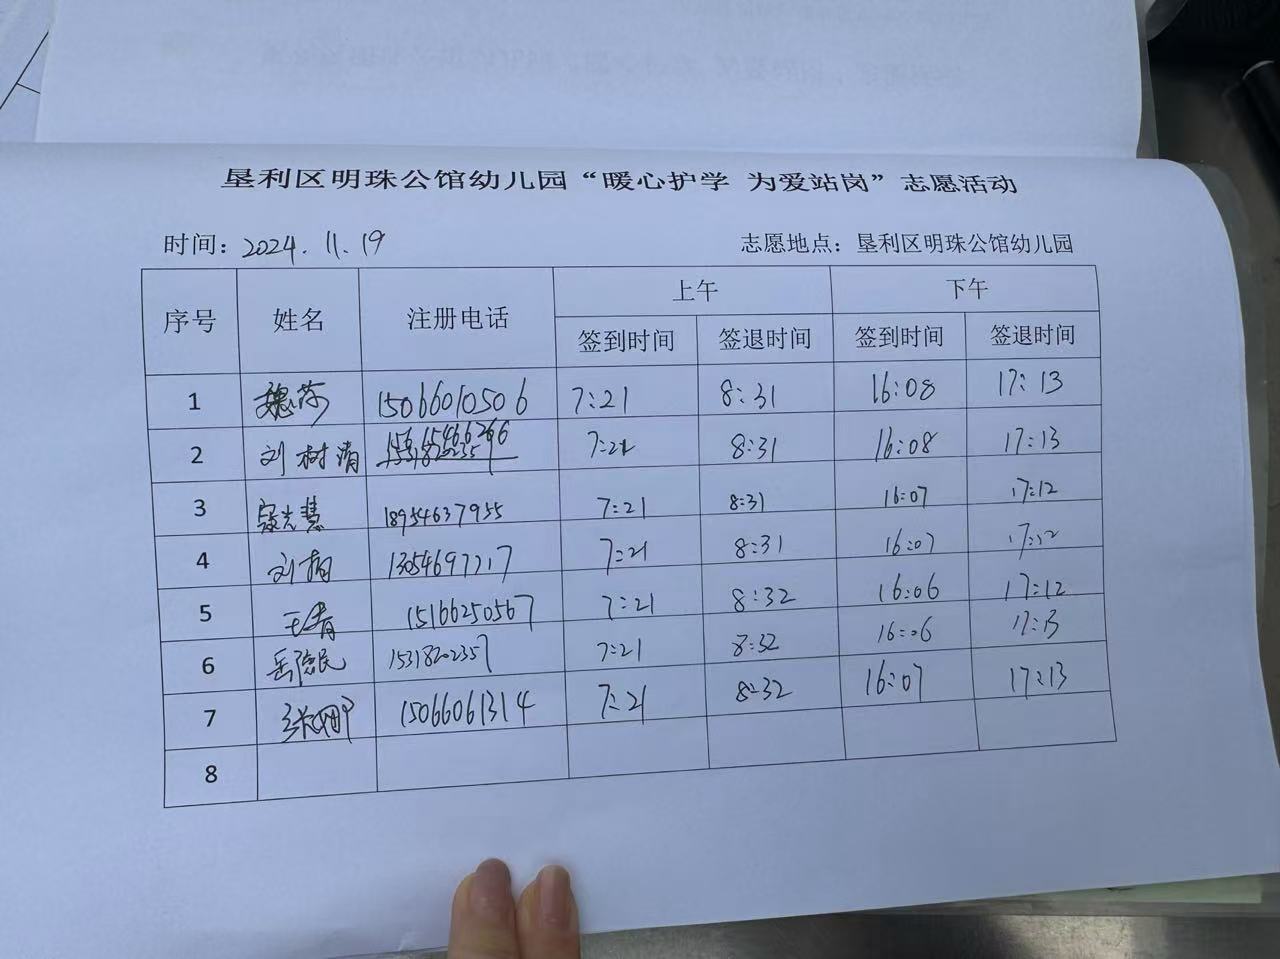 垦利区明珠公馆幼儿园“暖心护学 为爱站岗”志愿活动
时间：2024.11.19 志愿地点：垦利区明珠公馆幼儿园
序号 姓名 注册电话 上午 下午
签到时间 签退时间 签到时间 签退时间
1 魏莎 15066010506 7:21 8:31 16:08 17:13
2 刘树清 7:21 8:31 16:08 17:13
3 寇光慧 18954637955 7:21 8:31 16:07 17:12
4 刘 7:21 8:31 16:07 17:12
5 王青 15166250567 7:21 8:32 16:06 17:12
6 岳德民 15318202357 7:21 8:32 16:06 17:13
7 张珊 15066061314 7:21 8:32 16:07 17:13
8